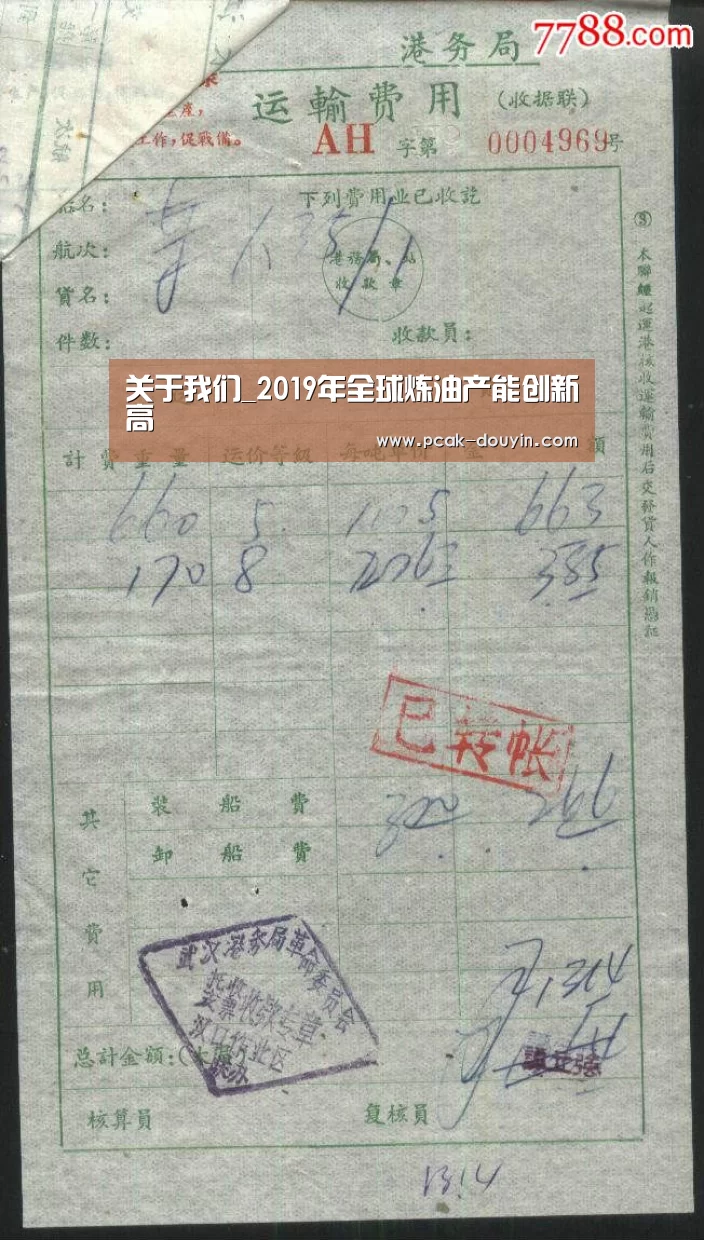 7788.com
港务局
运输费用
(收据联)
工作,促戰備。
AH 字第 0004969号
船名:
下列费用业已收訖
航次:
貨名:
港務局、站
收款章
件数:
收款員:
关于我们_2019年全球炼油产能创新
高
www.pcak-douyin.com
計費重量 运价等級 每吨单价 金額
660 5 1005 663
170 8 2263 385
已转帐
其它費用
装船費 320 266
卸船費
武汉港务局革命委员会
托收收款专章
发票
汉口作业区
¥1314
总計金額:(大
核算員
复核員
1314
本聯經起運港核收運輸費用后交發貨人作報銷憑証